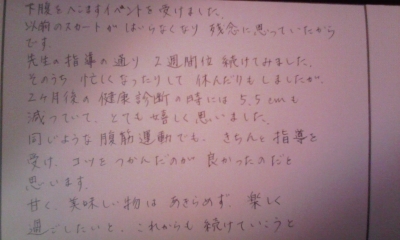 下腹をへこますイベントを受けました。
以前のスカートがはいらなくなり 残念に思っていたから
です。
先生の指導の通り 2週間位 続けてみました。
そのうち 忙しくなったりして 休んだりもしましたが、
2ヶ月後の 健康診断の時には 5.5cmも
減っていて、とても嬉しく思いました。
同じような腹筋運動でも、きちんと指導を
受け、コツをつかんだのが 良かったのだと
思います。
甘く、美味しい物は あきらめず、楽しく
過ごしたいと、これからも 続けていこうと